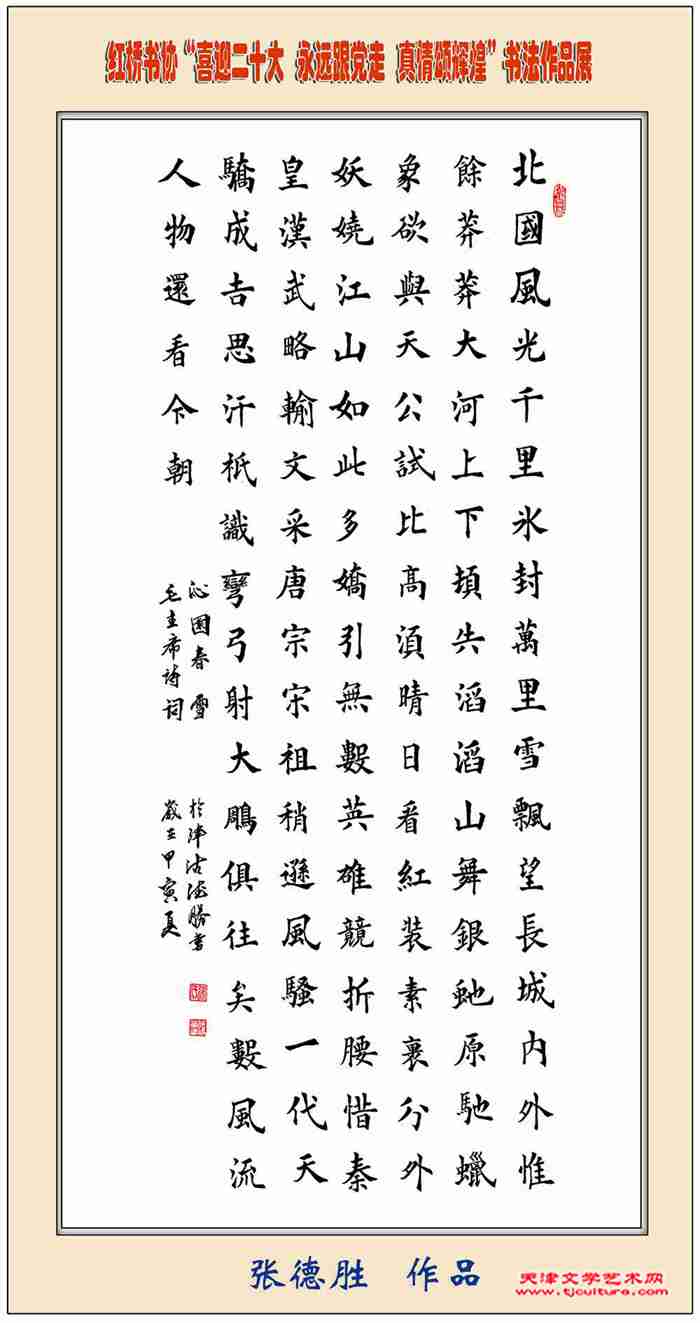 红桥书协“喜迎二十大 永远跟党走 真情颂辉煌”书法作品展
北國風光千里氷封萬里雪飄望長城内外惟
餘莽莽大河上下頓失滔滔山舞銀虵原馳蠟
象欲與天公試比高須晴日看紅装素裹分外
妖嬈江山如此多嬌引無數英雄競折腰惜秦
皇漢武略輸文采唐宗宋祖稍遜風騷一代天
驕成吉思汗祇識彎弓射大鵰俱往矣數風流
人物還看今朝
沁園春 雪
毛主席詩詞
於津沽德勝書
寅夏
张德胜 作品
天津文学艺术网
www.tjculture.com